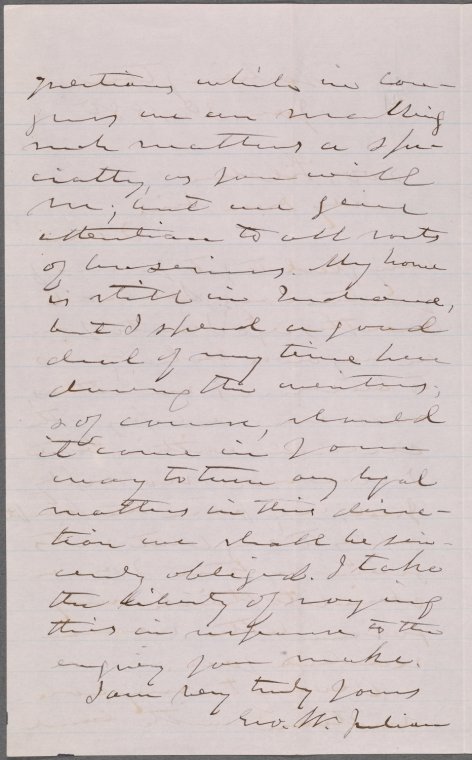 questions while in Con-
gress we are making
such matters a spe-
cialty, as you will
see; but we give
attention to all sorts
of business. My home
is still in Indiana,
but I spend a good
deal of my time here
during the winters,
& of course, should
it come in your
way to turn any legal
matters in this direc-
tion we shall be sin-
cerely obliged. I take
the liberty of saying
this in response to the
enquiry you make.
I am very truly yours
Geo. W. Julian